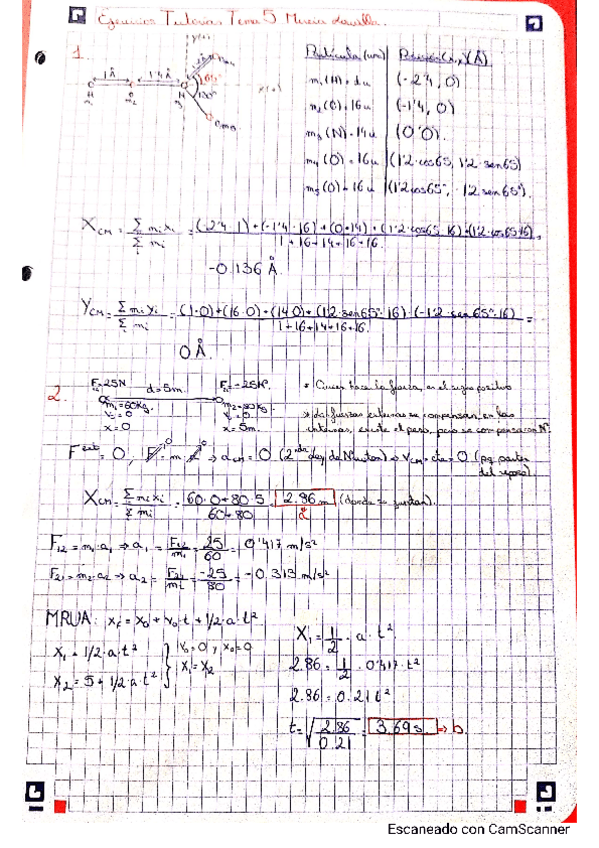 Ejercicios Tutorías Tema 5
1.
y(Å)
1 Å 1'4 Å
65°
130°
x(Å)
H O N
Partícula (um) Posición (x,y)(Å)
m₁(H) = 1u (-2'4, 0)
m₂(O) = 16u (-1'4, 0)
m₃(N) = 14u (0'0).
m₄(O) = 16u (1'2·cos65, 1'2·sen65)
m₅(O) = 16u (1'2cos65°, -1'2sen65°).
Xcm = Σ mi xi / Σ mi = (-2'4·1)+(-1'4·16)+(0·14)+(1'2·cos65·16)+(1'2·cos65·16) / 1+16+14+16+16 =
-0'136 Å.
Ycm = Σ mi yi / Σ mi = (1·0)+(16·0)+(14·0)+(1'2·sen65°·16)·(-1'2·sen65°·16) / 1+16+14+16+16. =
0 Å.
2. F₁₂=25N d=5m. F₂₁=-25N. * Quien hace la fuerza, es el signo positivo
m₁=60Kg. m₂=80Kg. * Las fuerzas externas se compensan, en las
v₀=0 v₀=0 internas, existe el peso, pero se compensa con N.
x=0 x=5m.
F ext = 0, F = m·a ⇒ acm = 0 (2nda ley de Newton) ⇒ vcm = cte = 0 (pq parten
del reposo)
Xcm = Σ mi xi / Σ mi = 60·0+80·5 / 60+80 = 2.86 m (donde se juntan).
a
F₁₂ = m₁·a₁ ⇒ a₁ = F₁₂/m₁ = 25/60 = 0'417 m/s²
F₂₁ = m₂·a₂ ⇒ a₂ = F₂₁/m₂ = -25/80 = -0.313 m/s²
MRUA: xf = x₀ + v₀·t + 1/2·a·t²
x₁ = 1/2·a·t² v₀=0 y x₀=0
x₂ = 5 + 1/2·a·t² x₁ = x₂
X₁ = 1/2 · a · t²
2.86 = 1/2 · 0'417·t²
2.86 = 0.21 t²
t = √2.86/0.21 = 3.69 s. ⇒ b.
Escaneado con CamScanner